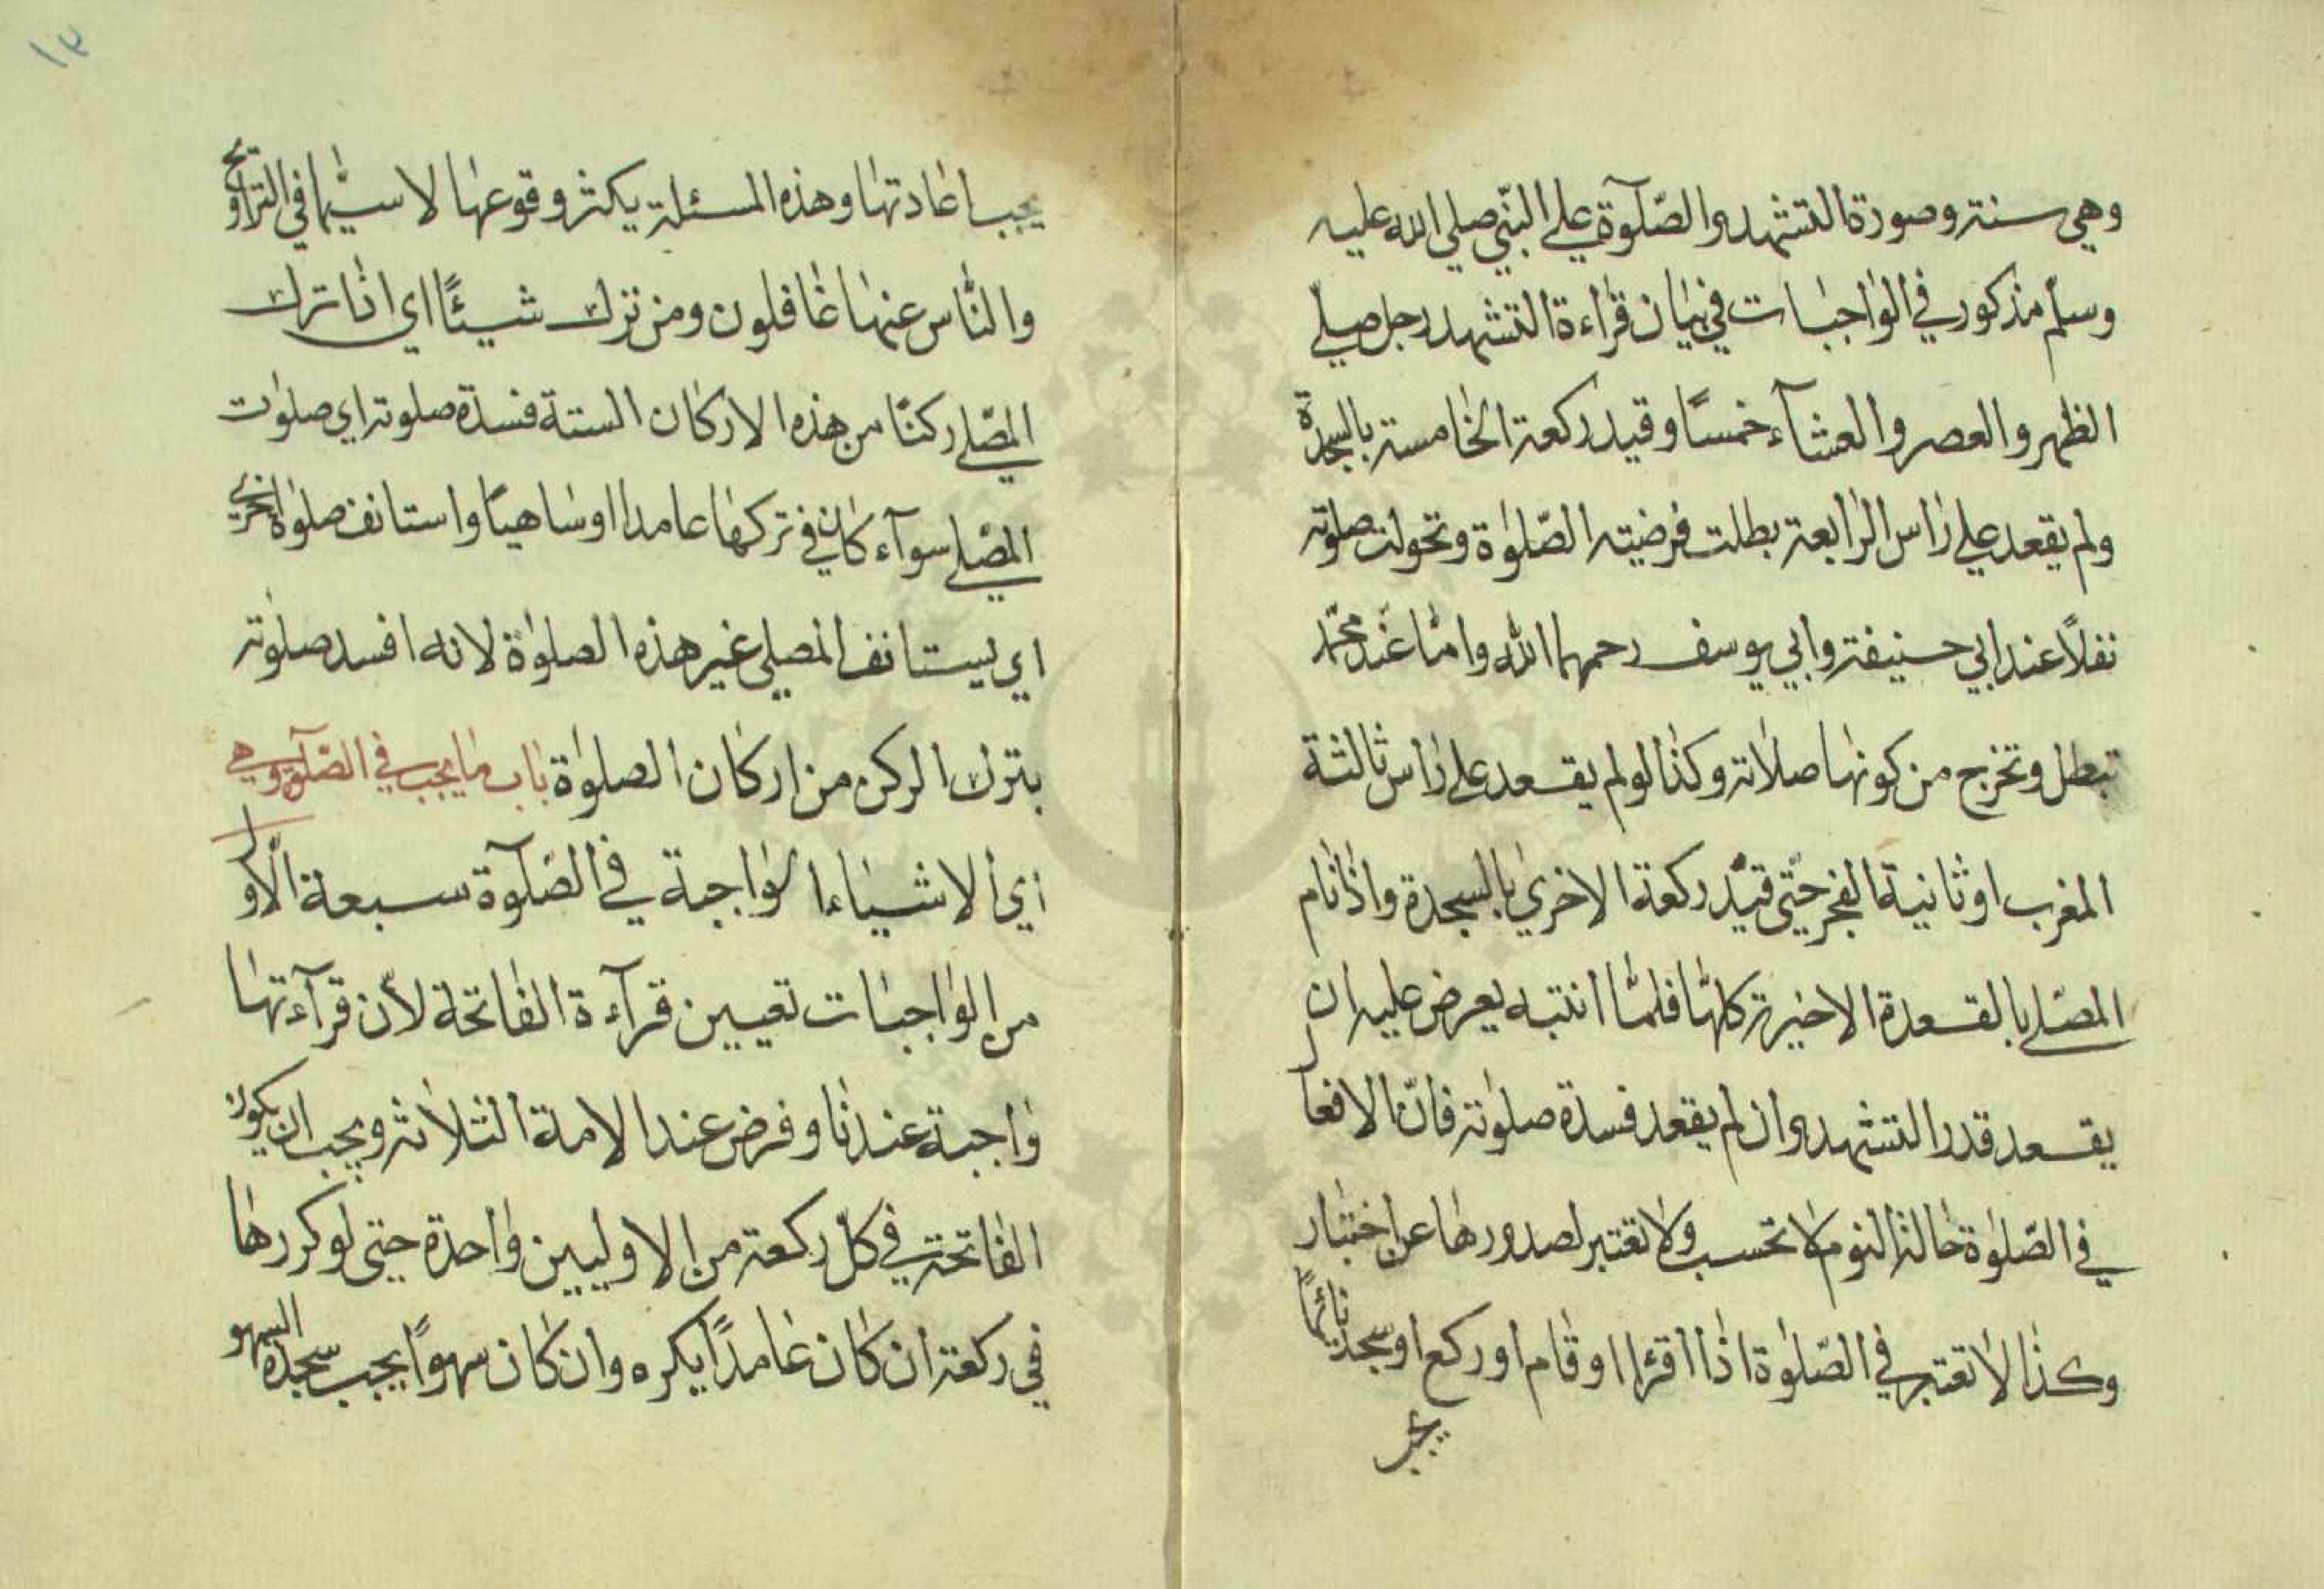 وهي سنة وصورة التشهد والصّلوٰة علي النبّي صلي الله عليه
وسلم مذكور في الواجبات في بيان قراءة التشهد رجل صلي
الظهر والعصر والعشآء خمسًا وقيد ركعة الخامسة بالسجدة
ولم يقعد علي راس الرابعة بطلت فرضية الصّلوٰة وتحولت صلوته
نفلاً عند ابي حنيفة وابي يوسف رحمهما الله وامّا عند محمّد
تبطل وتخرج من كونها صلاته وكذا لو لم يقعد علي راس ثالثة
المغرب او ثانية الفجر حتّي قيّد ركعة الاخري بالسجدة واذا نام
المصّلي بالقعدة الاخيرة كلهّا فلمّا انتبه يعرض عليه ان
يقعد قدر التشهد وان لم يقعد فسدة صلوته فانّ الافعال
في الصّلوٰة حالة النوم لا تحسب ولا تعتبر لصدورها عن اختيار
وكذا لا تعتبر في الصّلوٰة اذا اقرا او قام او ركع او سجد نائمًا
يجب
١٣
يجب اعادتها وهذه المسئلة يكثر وقوعها لا سيّما في التراويح
والنّاس عنها غافلون ومن ترك شيئًا اي اذا ترك
المصّلي ركنًا من هذه الاركان الستة فسدة صلوته اي صلوٰت
المصّلي سوآء كان في تركها عامدا او ساهيًا واستانف صلوٰة اخري
اي يستانف المصلي غير هذه الصلوٰة لانه افسد صلوته
بترك الركن من اركان الصلوٰة باب ما يجب في الصّلوٰة وهي
اي الاشياء الواجبة في الصّلوٰة سبعة الاول
من الواجبات تعيين قرآءة الفاتحة لانّ قرآءتها
واجبة عندنا وفرض عند الامة الثلاثة ويجب ان يكون
الفاتحة في كلّ ركعة من الاوليين واحدة حتي لو كررها
في ركعة ان كان عامدًا يكره وان كان سهوًا يجب سجدة السهو